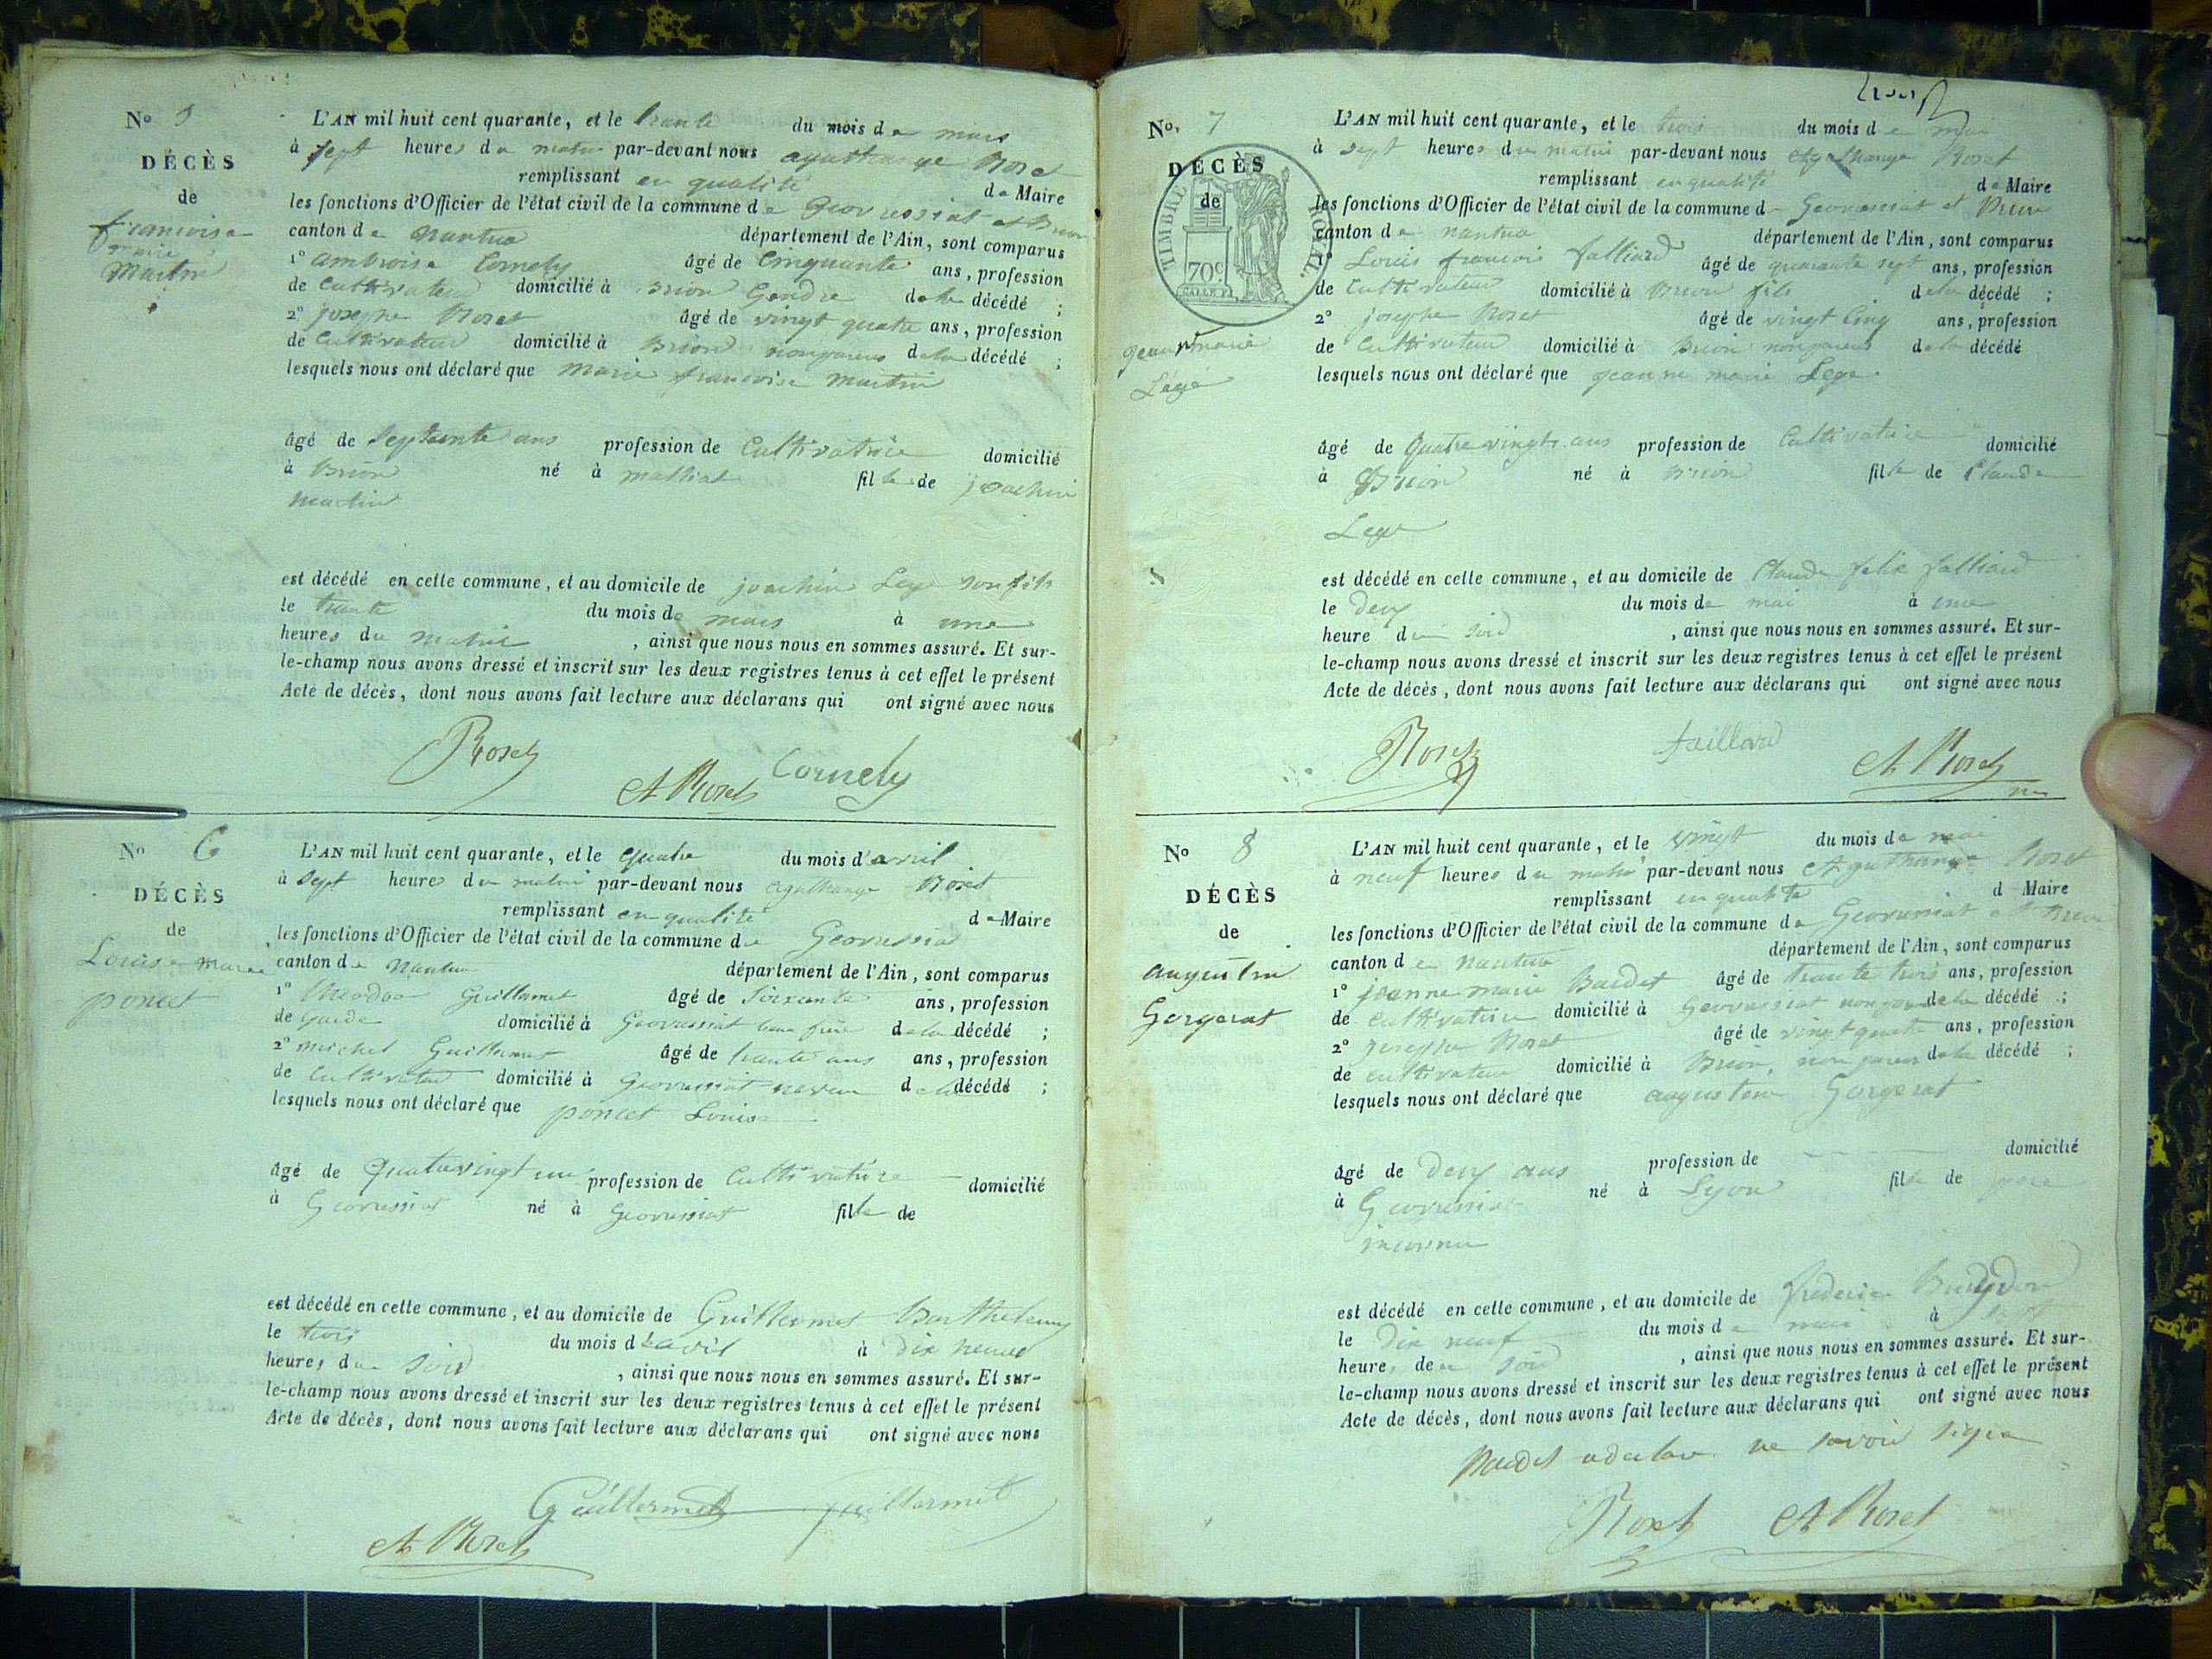 No 5
DÉCÈS
de
francoise
marie
Martin
L'AN mil huit cent quarante, et le trente du mois de mars
à sept heures du matin par-devant nous agathange Roset
remplissant en qualité de Maire
les fonctions d'Officier de l'état civil de la commune de Geovressiat et Brion
canton de nantua département de l'Ain, sont comparus
1° ambroise Cornely âgé de Cinquante ans, profession
de Cultivateur domicilié à Brion Gendre de la décédé ;
2° josephe Roset âgé de vingt quatre ans, profession
de Cultivateur domicilié à Brion non parens de la décédé ;
lesquels nous ont déclaré que marie francoise martin
âgé de Septente ans profession de Cultivatrice domicilié
à Brion né à malliat fille de joachin
martin
est décédé en cette commune, et au domicile de joachin Lege son fils
le trente du mois de mars à une
heures du matin , ainsi que nous nous en sommes assuré. Et sur-
le-champ nous avons dressé et inscrit sur les deux registres tenus à cet effet le présent
Acte de décès, dont nous avons fait lecture aux déclarans qui ont signé avec nous
Roset
At Roset Cornely
No 6
DÉCÈS
de
Louise marie
poncet
L'AN mil huit cent quarante, et le quatre du mois d'avril
à sept heures du matin par-devant nous agathange Roset
remplissant en qualité de Maire
les fonctions d'Officier de l'état civil de la commune de Geovressiat
canton de nantua département de l'Ain, sont comparus
1° theodore Guillermet âgé de Soixante ans, profession
de Garde domicilié à Geovressiat beau frere de la décédé ;
2° michel Guillermet âgé de trente ans ans, profession
de Cultivateur domicilié à Geovressiat neveu de la décédé ;
lesquels nous ont déclaré que poncet Louise
âgé de Quatrevingt un profession de Cultivatrice domicilié
à Geovressiat né à Geovressiat fille de
est décédé en cette commune, et au domicile de Guillermet Barthelemy
le trois du mois d'avril à dix heures
heures du Soir , ainsi que nous nous en sommes assuré. Et sur-
le-champ nous avons dressé et inscrit sur les deux registres tenus à cet effet le présent
Acte de décès, dont nous avons fait lecture aux déclarans qui ont signé avec nous
Guillermet Guillermet
At Roset
No. 7
DÉCÈS
de
TIMBRE ROYAL.
70c
jeanne marie
Légé
L'AN mil huit cent quarante, et le trois du mois de mai
à sept heures du matin par-devant nous Agathange Roset
remplissant en qualité de Maire
les fonctions d'Officier de l'état civil de la commune de Geovressiat et Brion
canton de nantua département de l'Ain, sont comparus
1° Louis francois falliard âgé de quarante sept ans, profession
de Cultivateur domicilié à Brion fils de la décédé ;
2° josephe Roset âgé de vingt Cinq ans, profession
de Cultivateur domicilié à Brion non parens de la décédé
lesquels nous ont déclaré que jeanne marie Lege
âgé de Quatre vingts ans profession de Cultivatrice domicilié
à Brion né à Brion fille de Claude
Lege
est décédé en cette commune, et au domicile de Claude felix falliard
le deux du mois de mai à une
heure du soir , ainsi que nous nous en sommes assuré. Et sur-
le-champ nous avons dressé et inscrit sur les deux registres tenus à cet effet le présent
Acte de décès, dont nous avons fait lecture aux déclarans qui ont signé avec nous
Roset faillard At Roset
No 8
DÉCÈS
de
augustine
Gorgerat
L'AN mil huit cent quarante, et le vingt du mois de mai
à neuf heures du matin par-devant nous Agathange Roset
remplissant en qualité d Maire
les fonctions d'Officier de l'état civil de la commune de Geovressiat et Brion
canton de nantua département de l'Ain, sont comparus
1° jeanne marie Baudet âgé de trente trois ans, profession
de cultivatrice domicilié à Geovressiat non parens de la décédé ;
2° josephe Roset âgé de vingt quatre ans, profession
de cultivateur domicilié à Brion, non parens de la décédé ;
lesquels nous ont déclaré que augustine Gorgerat
âgé de deux ans profession de domicilié
à Geovressiat né à Lyon fille de pere
inconnu
est décédé en cette commune, et au domicile de frederic
le dix neuf du mois de mai à
heures de soir , ainsi que nous nous en sommes assuré. Et sur-
le-champ nous avons dressé et inscrit sur les deux registres tenus à cet effet le présent
Acte de décès, dont nous avons fait lecture aux déclarans qui ont signé avec nous
Baudet a declare ne savoir signe
Roset At Roset